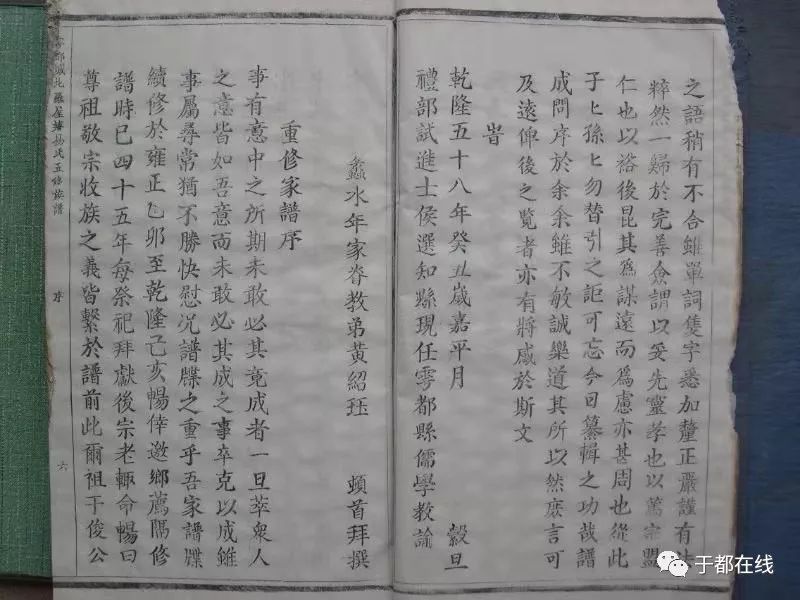 之語稍有不合雖單詞隻字悉加釐正嚴謹有法
粹然一歸於完善僉謂以妥先靈孝也以篤宗盟
仁也以裕後昆其爲謀遠而爲慮亦甚周也從此
子匕孫匕勿替引之詎可忘今日纂輯之功哉譜
成問序於余余雖不敏誠樂道其所以然庶言可
及遠俾後之覽者亦有將感於斯文
旹
乾隆五十八年癸丑歲嘉平月 穀旦
禮部試進士侯選知縣現任雩都縣儒學教諭
蠡水年家眷教弟黃紹珏 頓首拜撰
重修家譜序
事有意中之所期未敢必其竟成者一旦萃衆人
之意皆如吾意而未敢必其成之事卒克以成雖
事屬尋常猶不勝快慰況譜牒之重乎吾家譜牒
續修於雍正乙卯至乾隆己亥暢倖邀鄉薦隔修
譜時已四十五年每祭祀拜獻後宗老輒命暢曰
尊祖敬宗收族之義皆繫於譜前此爾祖干俊公
雩都城北羅屋 易氏五修族譜
序
六
于都在线